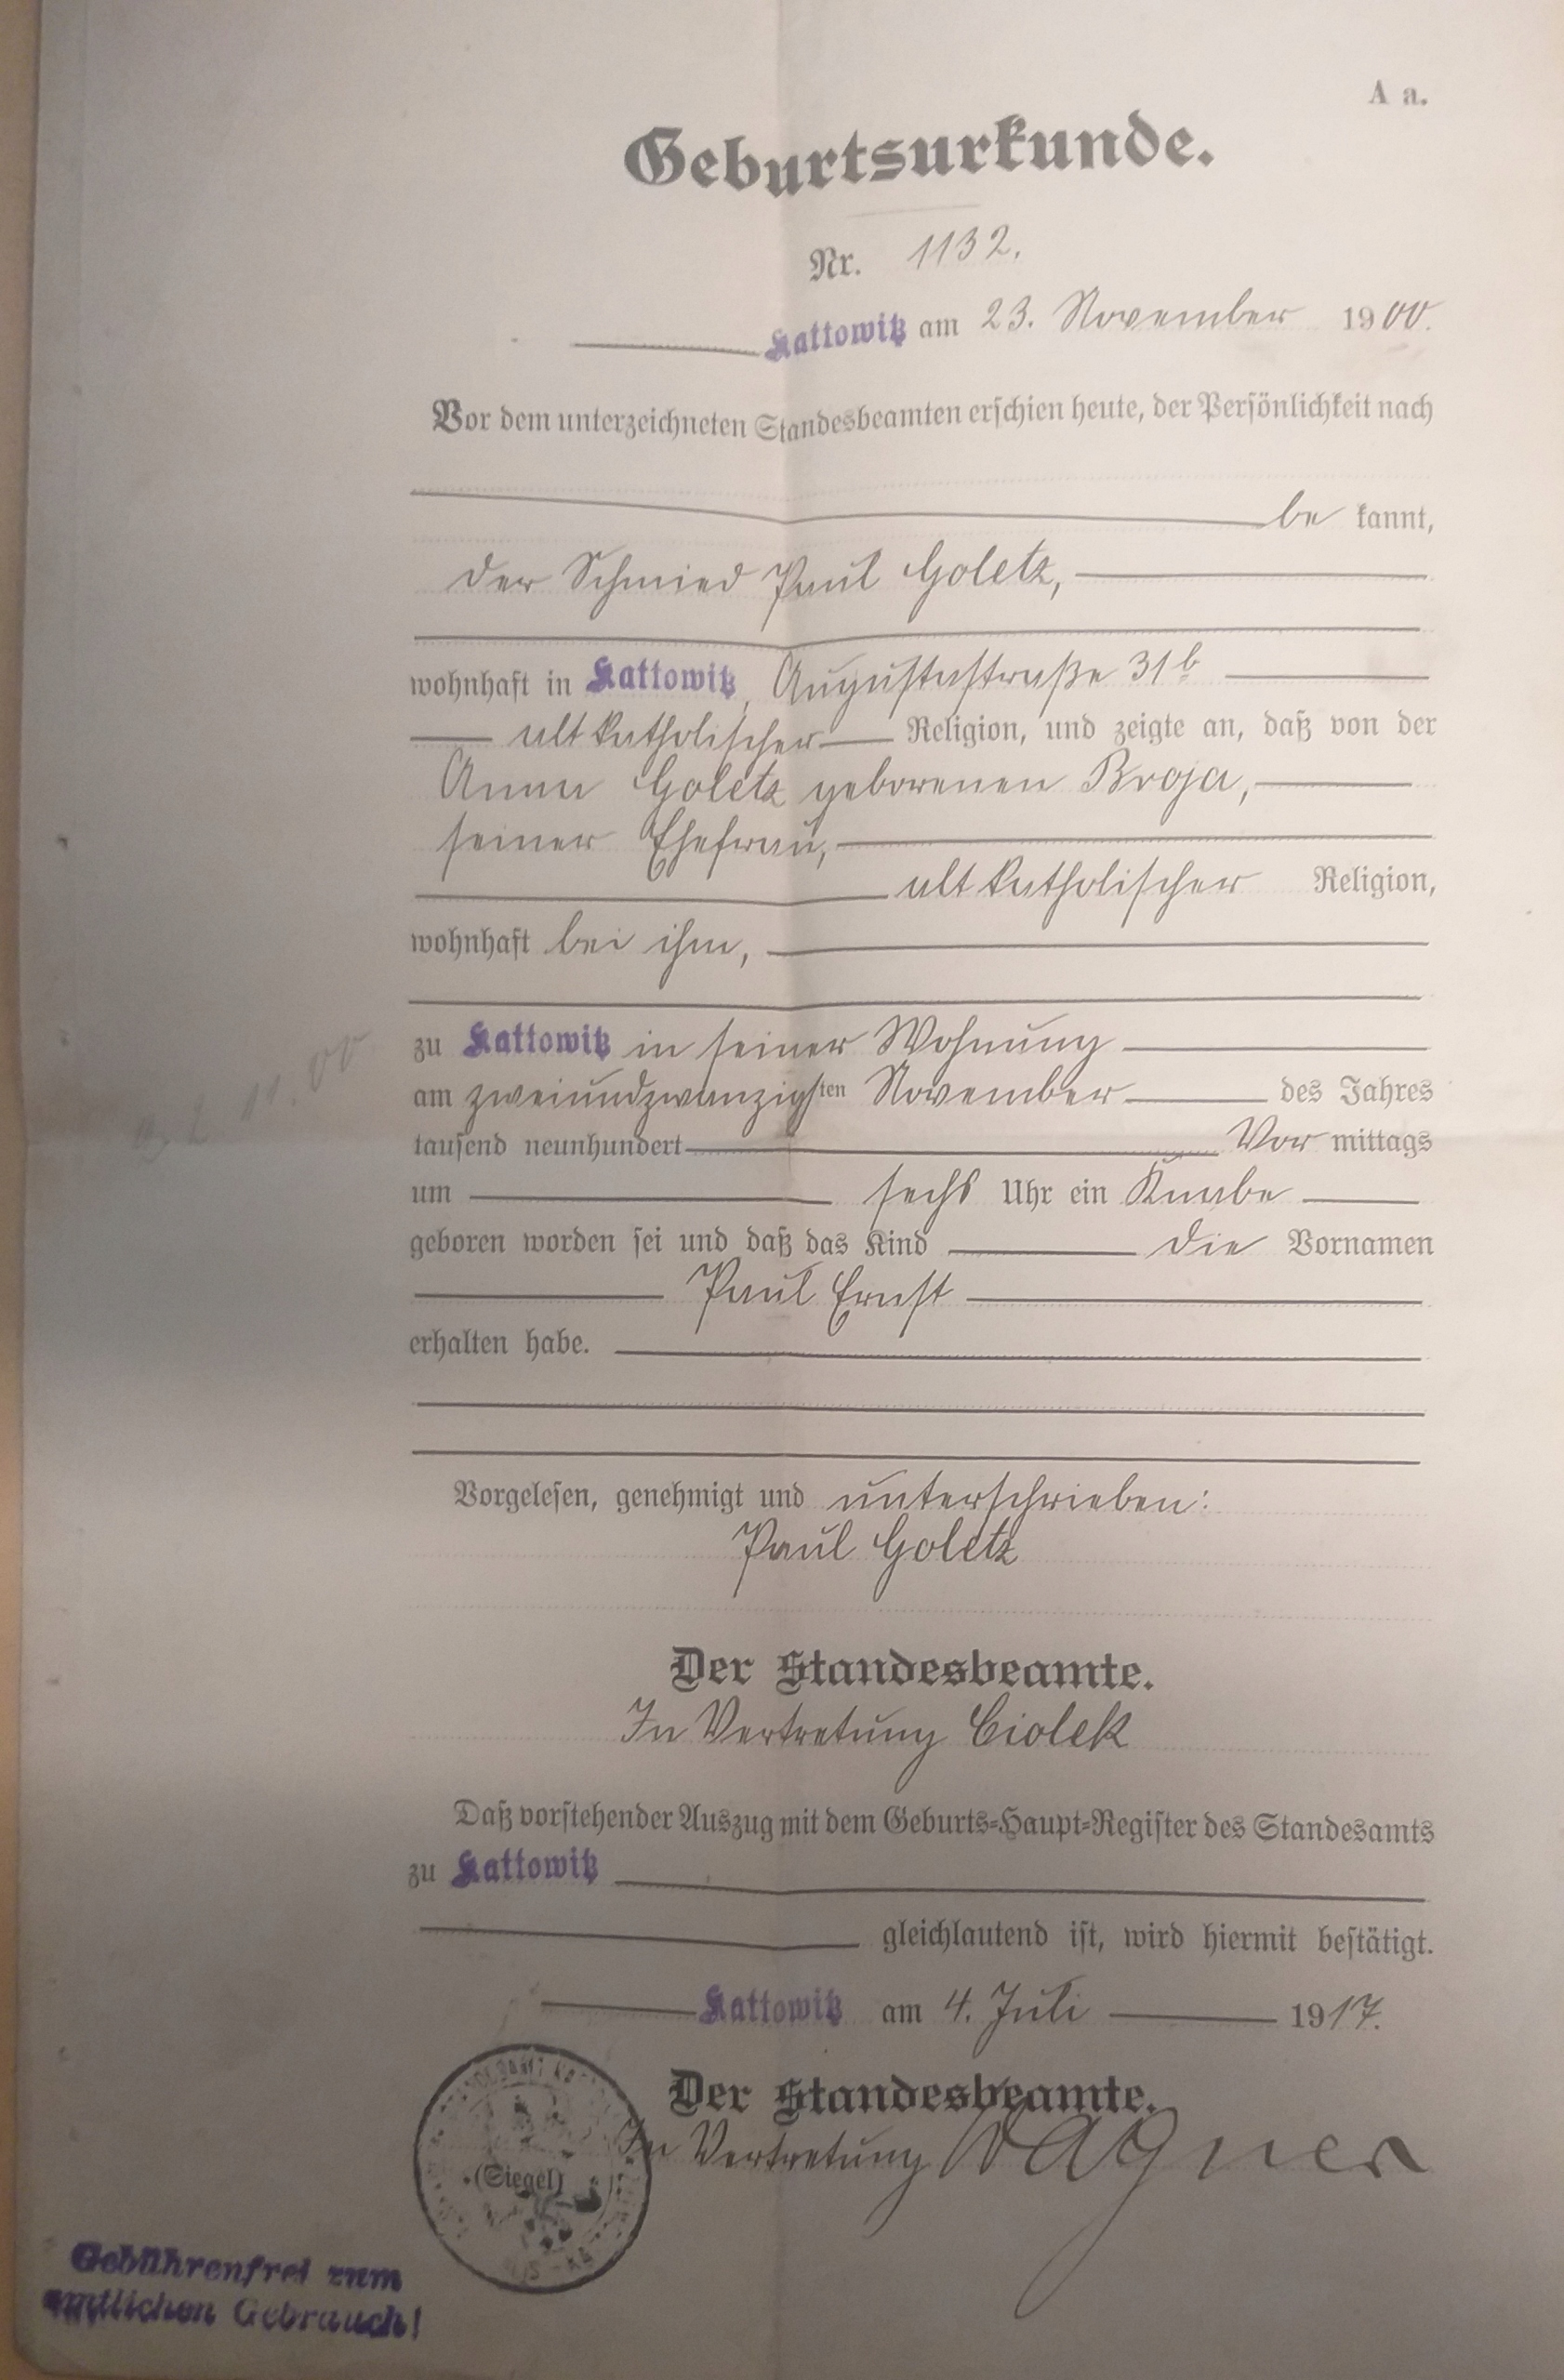 A a.
Geburtsurkunde.
Nr. 1132.
Kattowitz am 23. November 1900.
Vor dem unterzeichneten Standesbeamten erschien heute, der Persönlichkeit nach
be kannt,
der Schmied Paul Goletz,
wohnhaft in Kattowitz, Augustastraße 31b
altkatholischer Religion, und zeigte an, daß von der
Anna Goletz geborenen Broja,
seiner Ehefrau,
altkatholischer Religion,
wohnhaft bei ihm,
zu Kattowitz in seiner Wohnung
am zweiundzwanzigsten November des Jahres
tausend neunhundert Vor mittags
um sechs Uhr ein Knabe
geboren worden sei und daß das Kind die Vornamen
Paul Ernst
erhalten habe.
Vorgelesen, genehmigt und unterschrieben:
Paul Goletz
Der Standesbeamte.
In Vertretung Ciolek
Daß vorstehender Auszug mit dem Geburts-Haupt-Register des Standesamts
zu Kattowitz
gleichlautend ist, wird hiermit bestätigt.
Kattowitz am 4. Juli 1917.
Der Standesbeamte.
(Siegel)
In Vertretung Wagner
Gebührenfrei zum
amtlichen Gebrauch!